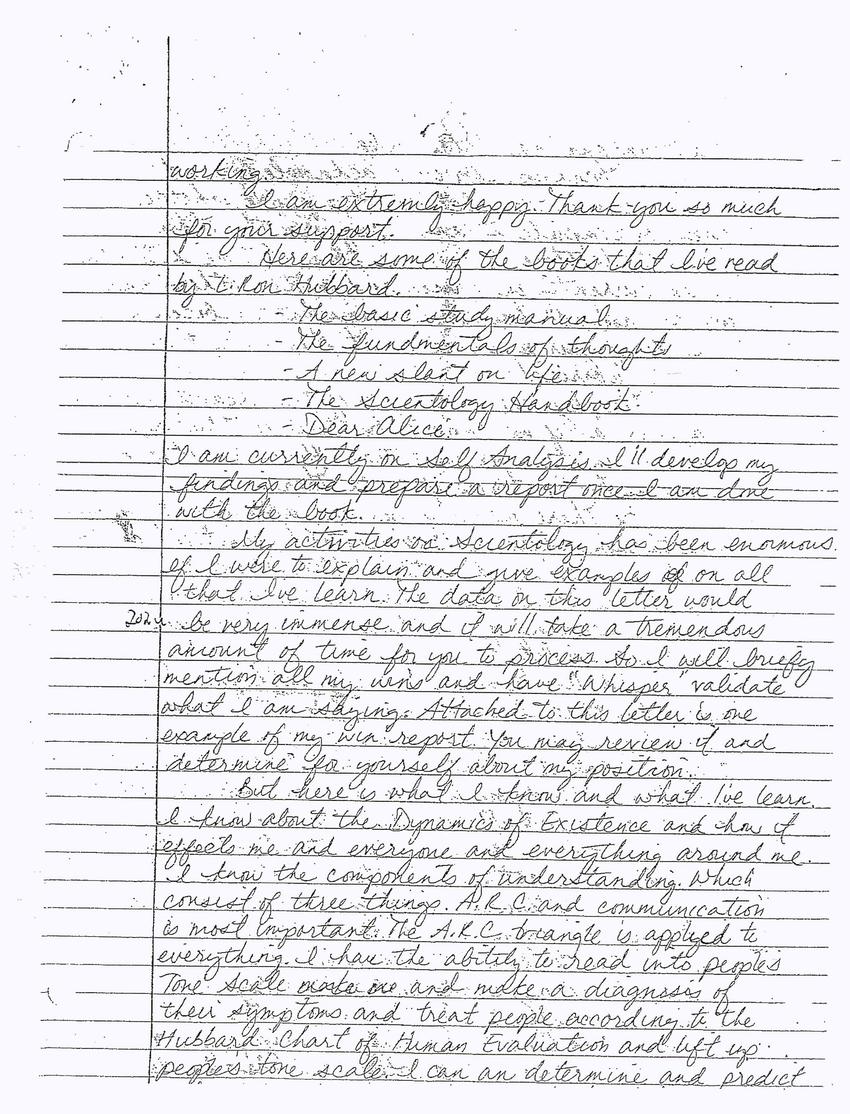 working.
I am extremly happy. Thank you so much
for your support.
Here are some of the books that I've read
by L. Ron Hubbard.
- The basic study manual
- The fundmentals of thoughts
- A new slant on life
- The Scientology Handbook.
- Dear Alice
I am currently on Self Analysis. I'll develop my
findings and prepare a report once I am done
with the book.
My activities on Scientology has been enormous.
if I were to explain and give examples of on all
that I've learn. The data on this letter would
be very immense and it will take a tremendous
amount of time for you to process. So I will briefly
mention all my wins and have "Whisper" validate
what I am saying. Attached to this letter is one
example of my win report. You may review it and
determine for yourself about my position.
But here is what I know and what I've learn.
I know about the Dynamics of Existence and how it
effects me and everyone and everything around me.
I know the components of understanding. Which
consist of three things. A.R.C. and communication
is most important. The A.R.C. triangle is applyed to
everything. I have the ability to read into peoples
Tone Scale and make a diagnosis of
their symptoms and treat people according to the
Hubbard Chart of Human Evaluation and lift up
people's tone scale. I can an determine and predict